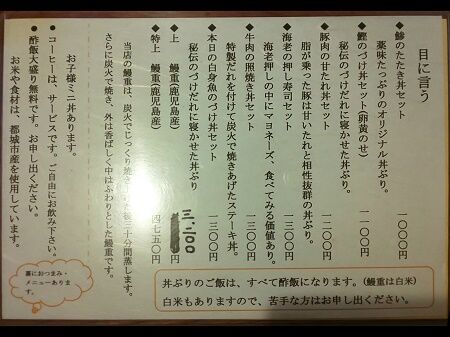 目に言う
◆鯵のたたき丼セット 一〇〇〇円
薬味たっぷりのオリジナル丼ぶり。
◆鰹のづけ丼セット(卵黄のせ) 一一〇〇円
秘伝のづけだれに寝かせた丼ぶり。
◆豚肉の甘たれ丼セット 一二〇〇円
脂が乗った豚は甘いたれと相性抜群の丼ぶり。
◆海老の押し寿司セット 一三〇〇円
海老押しの中にマヨネーズ、食べてみる価値あり。
◆牛肉の照焼き丼セット 一三〇〇円
特製だれを付けて炭火で焼きあげたステーキ丼。
◆本日の白身魚のづけ丼セット 一三〇〇円
秘伝のづけだれに寝かせた丼ぶり。
◆上 鰻重(鹿児島産) 三、一〇〇円
◆特上 鰻重(鹿児島産) 四七五〇円
当店の鰻重は、炭火でじっくり焼き、その後三十分間蒸します。
さらに炭火で焼き、外は香ばしく中はふわりとした鰻重です。
お子様ミニ丼あります。
●コーヒーは、サービスです。ご自由にお飲み下さい。
●酢飯大盛り無料です。お申し出ください。
お米や食材は、都城市産を使用しています。
丼ぶりのご飯は、すべて酢飯になります。(鰻重は白米)
白米もありますので、苦手な方はお申し出ください。
裏におつまみ・
メニューありま
す。